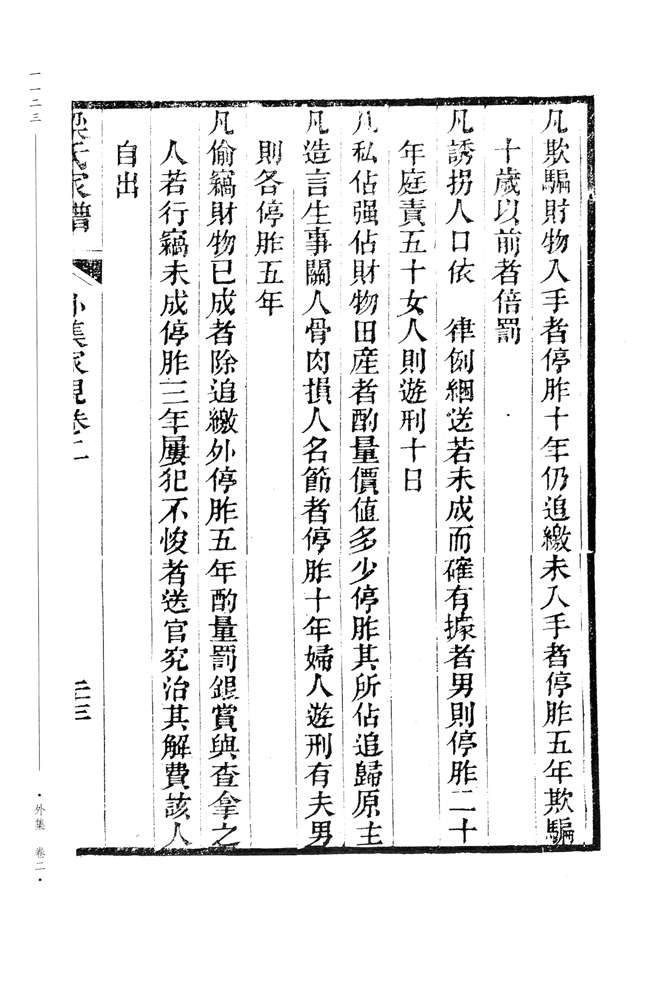 凡欺騙財物入手者停胙十年仍追繳未入手者停胙五年欺騙
十歲以前者倍罰
凡誘拐人口依　律例綑送若未成而確有據者男則停胙二十
年庭責五十女人則遊刑十日
凡私佔强佔財物田産者酌量價値多少停胙其所佔追歸原主
凡造言生事關人骨肉損人名節者停胙十年婦人遊刑有夫男
則各停胙五年
凡偷竊財物已成者除追繳外停胙五年酌量罰銀賞與查拿之
人若行竊未成停胙三年屢犯不悛者送官究治其解費該人
自出
梁氏家譜　外集家規卷二　二三
一一二三
·外集　卷二·